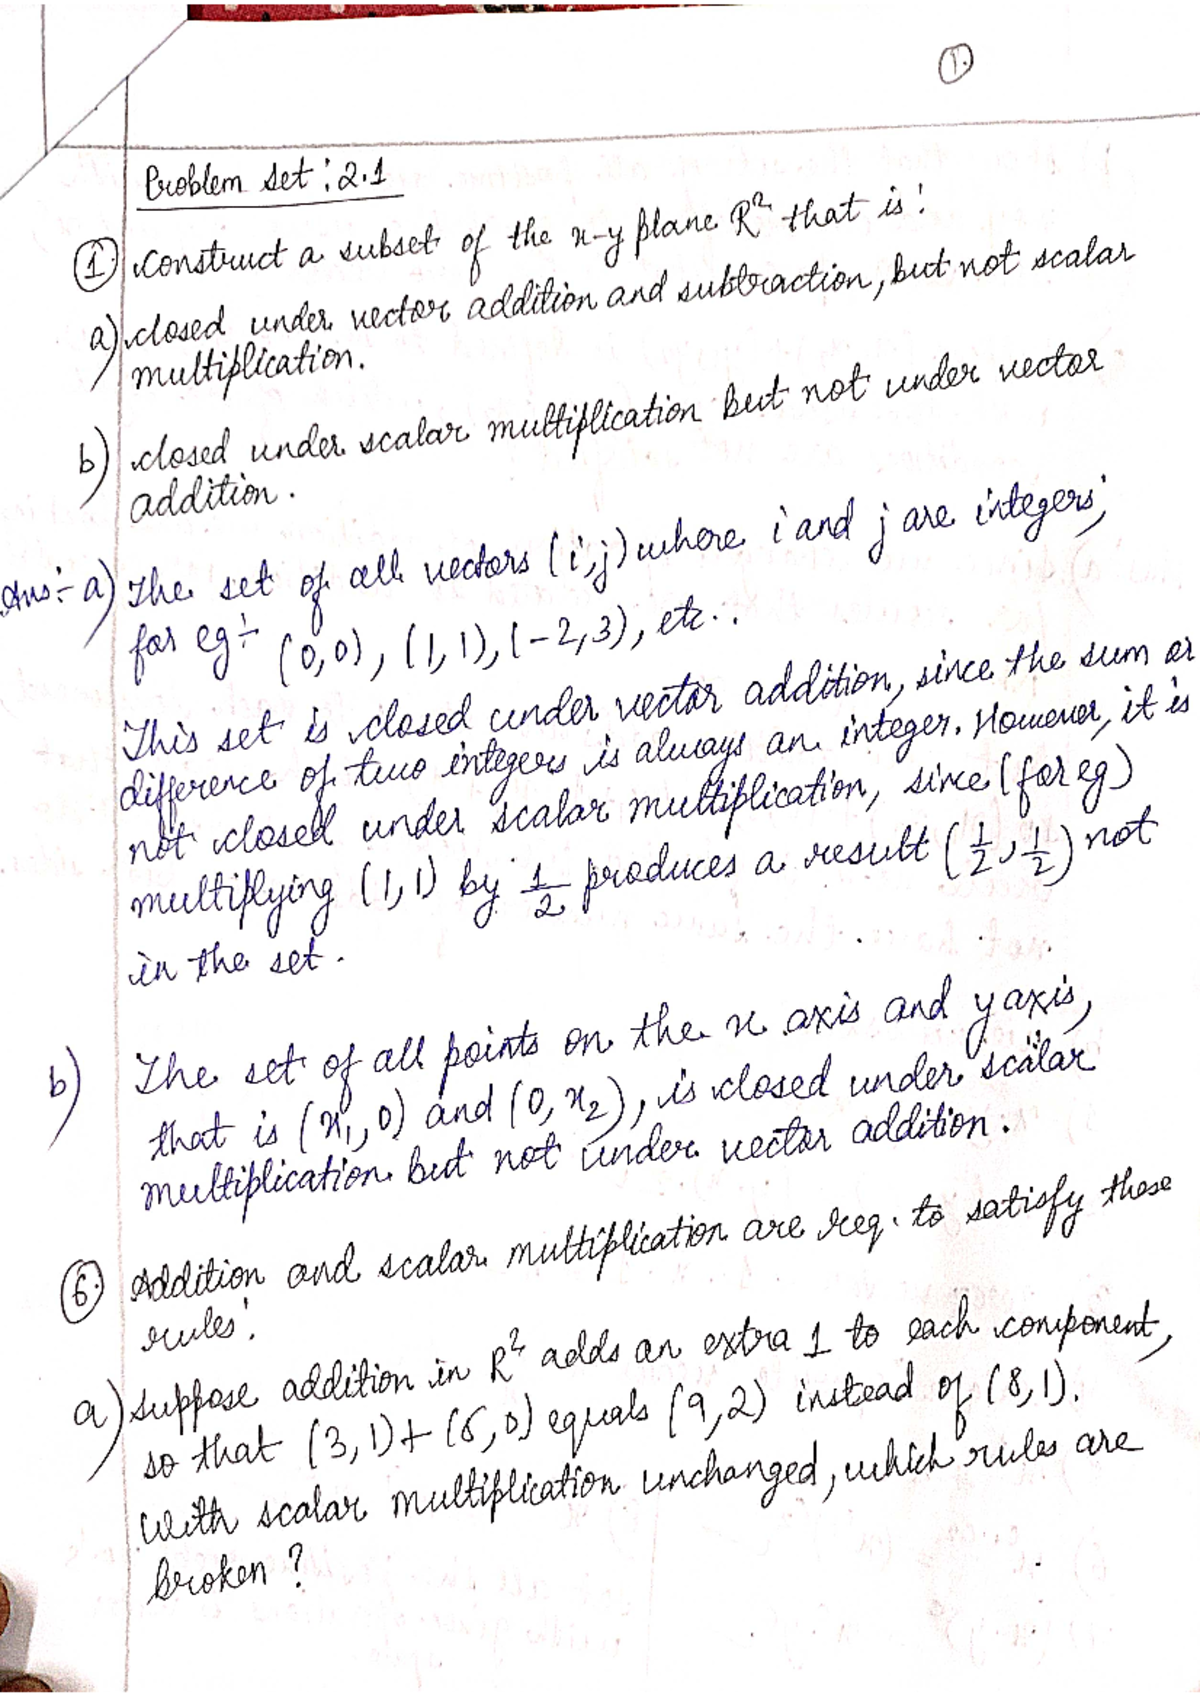 1.
Problem set : 2.1
① Construct a subset of the x-y plane R² that is :
a) closed under vector addition and subtraction, but not scalar
multiplication.
b) closed under scalar multiplication but not under vector
addition.
Ans:- a) The set of all vectors (i,j) where i and j are integers;
for eg ÷ (0,0), (1,1), (-2,3), etc..
This set is closed under vector addition, since the sum or
difference of two integers is always an integer. However, it is
not closed under scalar multiplication, since (for eg)
multiplying (1,1) by 1/2 produces a result (1/2, 1/2) not
in the set.
b) The set of all points on the x axis and y axis,
that is (x₁,0) and (0,x₂), is closed under scalar
multiplication but not under vector addition.
⑥ Addition and scalar multiplication are req. to satisfy these
rules :
a) suppose addition in R² adds an extra 1 to each component,
so that (3,1)+(5,0) equals (9,2) instead of (8,1).
with scalar multiplication unchanged, which rules are
broken ?